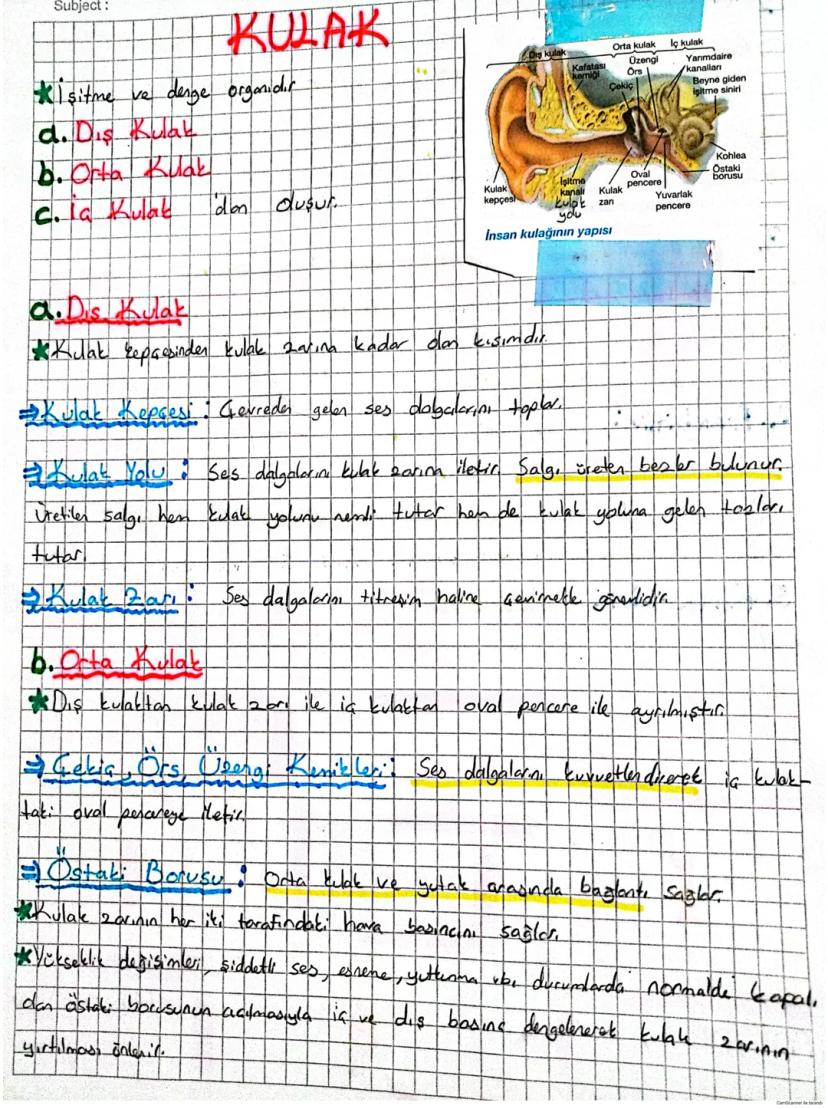 Subject :
KULAK
*İşitme ve denge organıdır
a. Dış Kulak
b. Orta Kulak
c. İç Kulak 'dan oluşur.
Dış kulak
Orta kulak
İç kulak
Kafatası kemiği
Üzengi
Örs
Çekiç
Yarımdaire kanalları
Beyne giden işitme siniri
Kohlea
Östaki borusu
Kulak kepçesi
İşitme kanalı
kulak yolu
Kulak zarı
Oval pencere
Yuvarlak pencere
İnsan kulağının yapısı
a. Dış Kulak
*Kulak kepçesinden kulak zarına kadar olan kısımdır.
⇒Kulak Kepçesi : Çevreden gelen ses dalgalarını toplar.
⇒Kulak Yolu : Ses dalgalarını kulak zarına iletir. Salgı üreten bezler bulunur.
Üretilen salgı hem kulak yolunu nemli tutar hem de kulak yoluna gelen tozları
tutar.
⇒Kulak Zarı : Ses dalgalarını titreşim haline çevirmekle görevlidir.
b. Orta Kulak
*Dış kulaktan kulak zarı ile iç kulaktan oval pencere ile ayrılmıştır.
⇒Çekiç, Örs, Üzengi Kemikleri : Ses dalgalarını kuvvetlendirerek iç kulak-
taki oval pencereye iletir.
⇒Östaki Borusu : Orta kulak ve yutak arasında bağlantı sağlar.
*Kulak zarının her iki tarafındaki hava basıncını sağlar.
*Yükseklik değişimleri, şiddetli ses, esneme, yutkunma vb. durumlarda normalde kapalı
olan östaki borusunun açılmasıyla iç ve dış basınç dengelenerek kulak zarının
yırtılması önlenir.
CamScanner ile tarandı